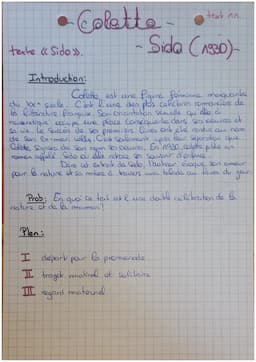 - Colette -
text n
texte « Sido ».
- Sido (1930) -
Introduction:
Colette, est une figure féminine marquante
du XXe siècle. C'est l'une des plus célèbres romancières de
la littérature française. Son orientation sexuelle qu'elle a
occupe une place conséquente dans ses oeuvres et
sa vie. Le succès de ses premiers livres ont été rendus au nom
de son Ex-mari willy. C'est seulement après leur séparation que
Colette signe de son nom ses oeuvres. En 1930, colette publie un
roman appelé Sido où elle retrace ses souvenirs d'enfance.
Dans cet extrait de Sido, l'auteur évoque son amour
pour la nature et sa mère à travers une balade au lever du jour
Prob: En quoi ce texte est-il une double célébration de la
nature et de la maman?
Plan:
I départ pour la promenade
II trajet matinal et solitaire
III regard maternel